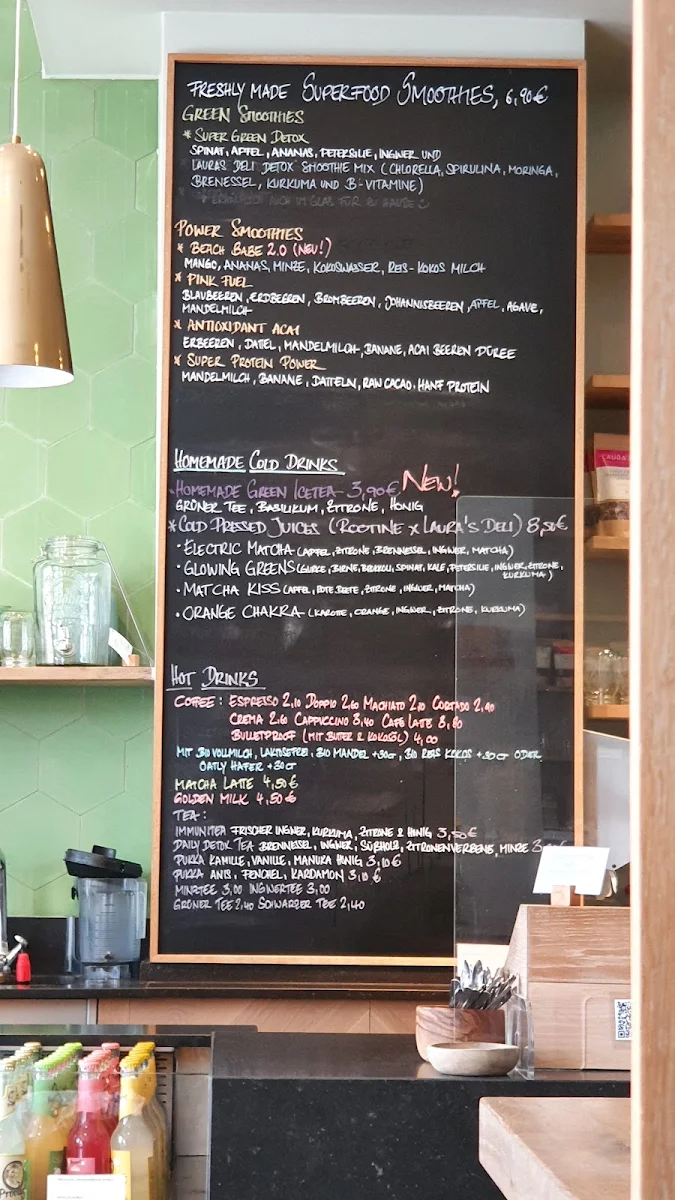 FRESHLY MADE SUPERFOOD SMOOTHIES, 6,90€
GREEN SMOOTHIES
* SUPER GREEN DETOX
SPINAT, APFEL, ANANAS, PETERSILIE, INGWER UND
LAURAS DELI DETOX SMOOTHIE MIX (CHLORELLA, SPIRULINA, MORINGA,
BRENESSEL, KURKUMA UND B-VITAMINE)
POWER SMOOTHIES
* BEACH BABE 2.0 (NEU!)
MANGO, ANANAS, MINZE, KOKOSWASSER, REIS-KOKOS MILCH
* PINK FUEL
BLAUBEEREN, ERDBEEREN, BROMBEEREN, JOHANNISBEEREN, APFEL, AGAVE,
MANDELMILCH
* ANTIOXIDANT ACAI
ERBEEREN, DATTEL, MANDELMILCH, BANANE, ACAI BEEREN PÜREE
* SUPER PROTEIN POWER
MANDELMILCH, BANANE, DATTELN, RAW CACAO, HANF PROTEIN
HOMEMADE COLD DRINKS
HOMEMADE GREEN ICETEA 3,90€ NEW!
GRÜNER TEE, BASILIKUM, ZITRONE, HONIG
* COLD PRESSED JUICES (ROOTINE X LAURA'S DELI) 8,50€
• ELECTRIC MATCHA (APFEL, ZITRONE, BRENNESSEL, INGWER, MATCHA)
• GLOWING GREENS (GURKE, BIRNE, BROKKOLI, SPINAT, KALE, PETERSILIE, INGWER, ZITRONE,
KURKUMA)
• MATCHA KISS (APFEL, ROTE BEETE, ZITRONE, INGWER, MATCHA)
• ORANGE CHAKRA (KAROTTE, ORANGE, INGWER, ZITRONE, KURKUMA)
HOT DRINKS
COFFEE: ESPRESSO 2,10 DOPPIO 2,60 MACHIATO 2,10 CORTADO 2,90
CREMA 2,60 CAPPUCCINO 3,40 CAFE LATTE 3,80
BULLETPROOF (MIT BUTTER & KOKOSÖL) 4,00
MIT BIO VOLLMILCH, LAKTOSEFREI, BIO MANDEL +30CT, BIO REIS KOKOS +30CT ODER
OATLY HAFER +30CT
MATCHA LATTE 4,50€
GOLDEN MILK 4,50€
TEA:
IMMUNITEA FRISCHER INGWER, KURKUMA, ZITRONE & HONIG 3,50€
DAILY DETOX TEA BRENNESSEL, INGWER, SÜßHOLZ, ZITRONENVERBENE, MINZE
PUKKA KAMILLE, VANILLE, MANUKA HONIG 3,10€
PUKKA ANIS, FENCHEL, KARDAMON 3,10€
MINZTEE 3,00 INGWERTEE 3,00
GRÜNER TEE 2,40 SCHWARZER TEE 2,40